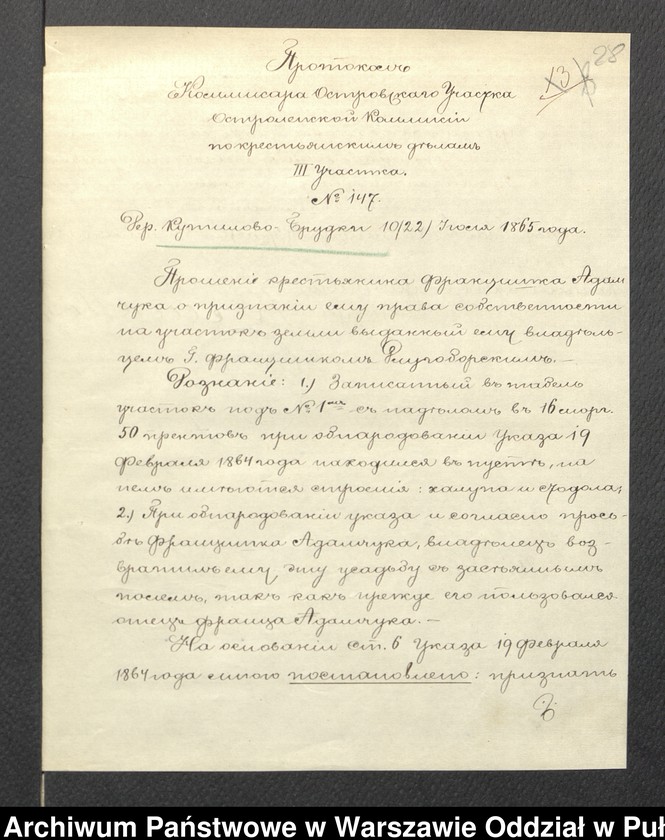 28
13
Протоколъ
Коммисара Островскаго Участка
Остроленской Коммисіи
по крестьянскимъ дѣламъ
III Участка.
№ 147.
Дер. Купилово-Брудки 10/22) Іюля 1865 года.
Прошеніе крестьянина Францишка Адам
чука о признаніи ему права собственности
на участокъ земли выданный ему владѣль-
цемъ Г. Францишкомъ
Дознаніе: 1.) Записанный въ табель
участокъ подъ № 1 съ надѣломъ въ 16 морг.
50 прентовъ при обнародованіи Указа 19
Февраля 1864 года находился въ пустѣ, на
немъ имѣются строенія: халупа и стодола;
2.) При обнародованіи указа и согласно прось-
бѣ Францишка Адамчука, владѣлецъ воз-
вратилъ ему эту усадьбу съ застяннымъ
полемъ, такъ какъ прежде его пользовался
отецъ Франца Адамчука. —
На основаніи ст. 6 Указа 19 Февраля
1864 года постановлено: признать
Archiwum Państwowe w Warszawie Oddział w Puł